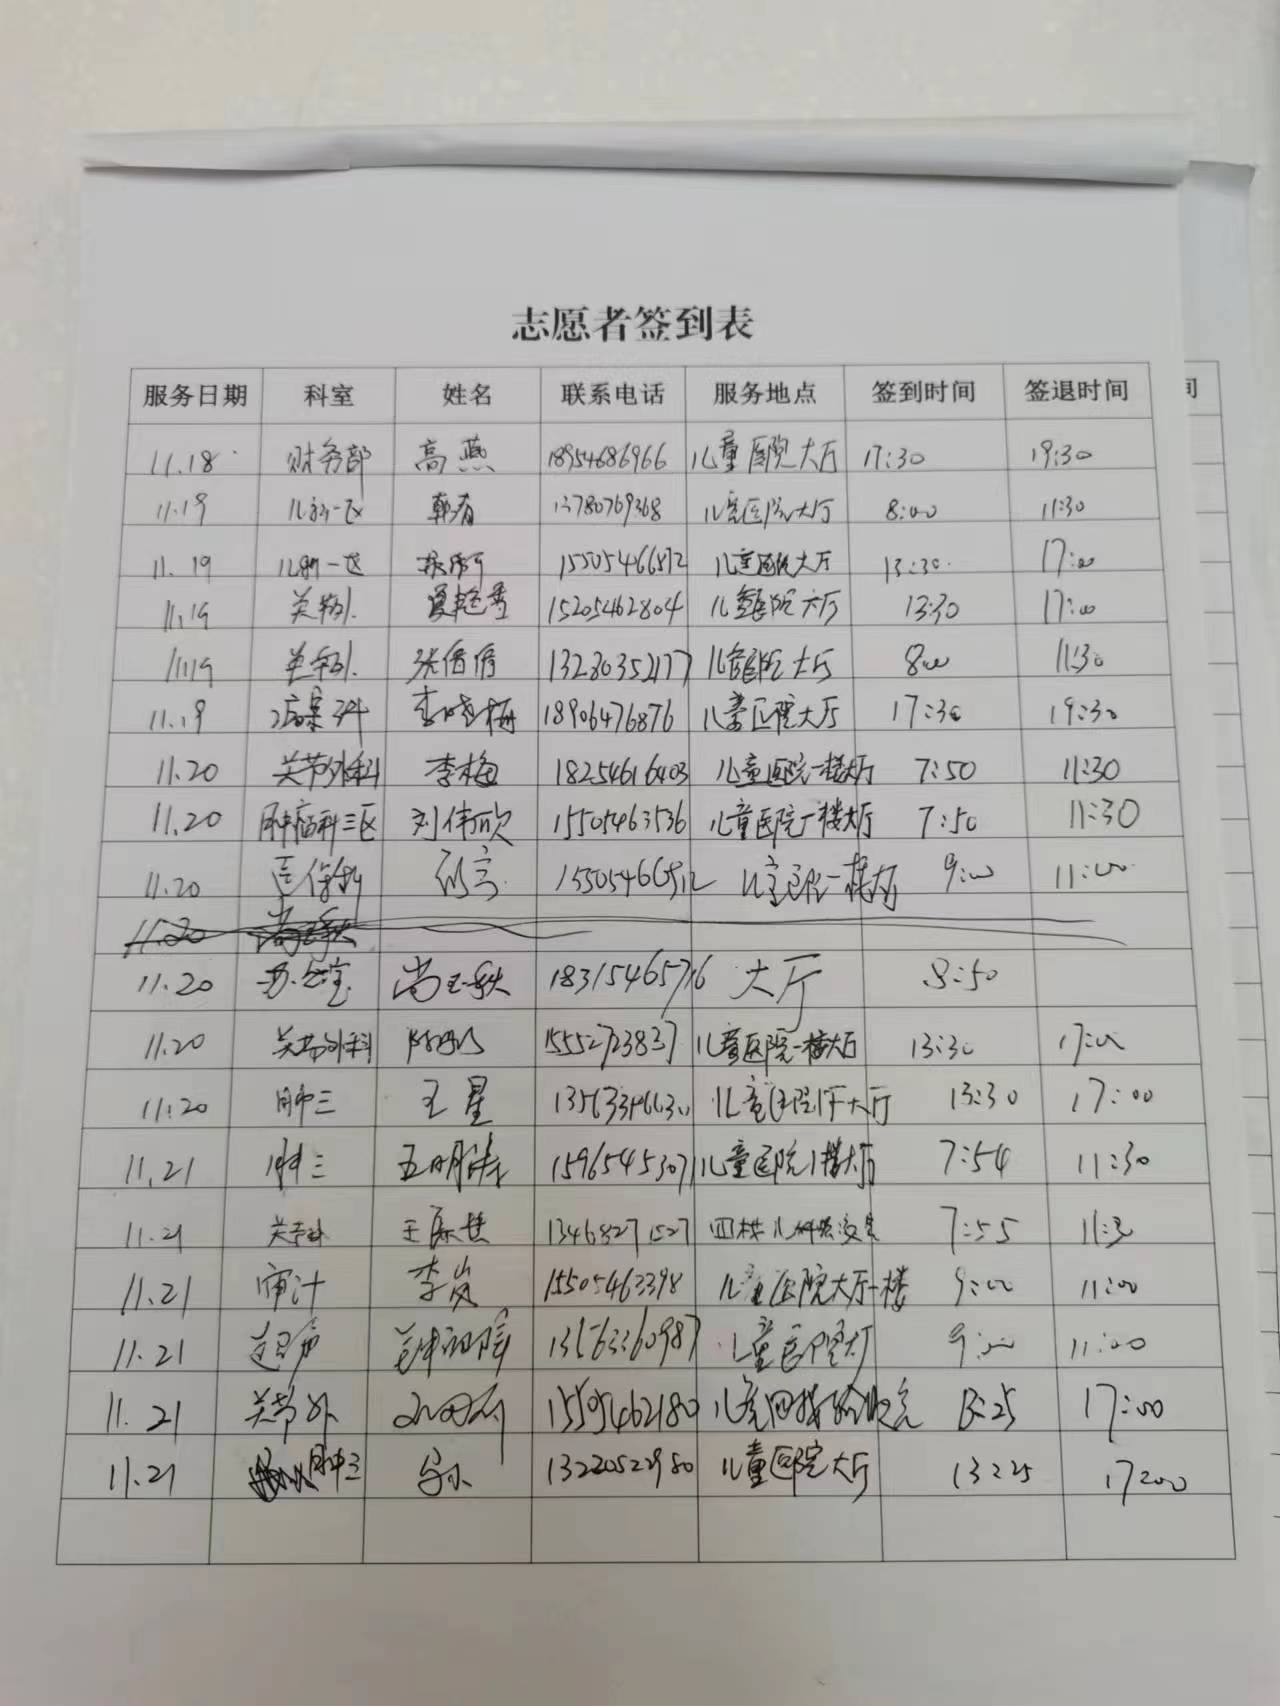 志愿者签到表
服务日期 科室 姓名 联系电话 服务地点 签到时间 签退时间 间
11.18 财务部 高燕 18954686966 儿童医院大厅 17:30 19:30
11.19 13780769368 儿童医院大厅 8:00 11:30
11.19 15505466512 儿童医院大厅 13:30 17:00
11.19 15205462804 儿童医院大厅 13:30 17:00
11.19 张倩倩 13280352177 儿童医院大厅 8:00 11:30
11.19 病案科 李晓梅 18906476876 儿童医院大厅 17:30 19:30
11.20 关节外科 李梅 18254616403 儿童医院一楼大厅 7:50 11:30
11.20 肿瘤科三区 刘伟欣 15505463536 儿童医院一楼大厅 7:50 11:30
11.20 医保科 15505466512 儿童医院一楼大厅 9:00 11:00
11.20
11.20 办公室 尚玉秋 18315465716 大厅 8:50
11.20 关节外科 15552723837 儿童医院一楼大厅 13:30 17:00
11.20 肿三 王星 儿童医院1F大厅 13:30 17:00
11.21 肿三 15965453071 儿童医院1楼大厅 7:54 11:30
11.21 7:55 11:30
11.21 审计 李岚 15505463398 儿童医院大厅一楼 9:00 11:00
11.21 13563360987 儿童医院大厅 9:00 11:00
11.21 关节外 15505462180 13:25 17:00
11.21 肿三 13220522980 儿童医院大厅 13:25 17:00